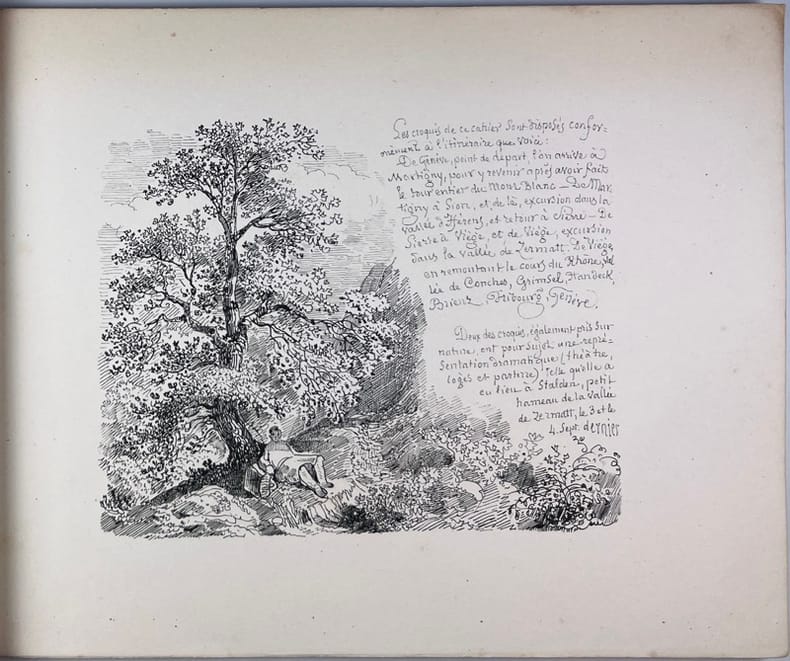 Les croquis de ce cahier sont disposés confor-
mément à l'itinéraire que voici:
De Genève, point de départ, l'on arrive à
Martigny, pour y revenir après avoir fait
le tour entier du Mont Blanc — De Mar-
tigny à Sion, et de là, excursion dans la
vallée d'Hérens, et retour à Sierre — De
Sierre à Viège, et de Viège, excursion
dans la vallée de Zermatt. De Viège
en remontant le cours du Rhône, val
lée de Conches, Grimsel, Handeck,
Brienz, Fribourg, Genève.
Deux des croquis, également pris sur
nature, ont pour sujet une repré-
sentation dramatique (théâtre,
loges et parterre) telle qu'elle a
eu lieu à Stalden, petit
hameau de la vallée
de Zermatt, le 3 et le
4. Sept. dernier